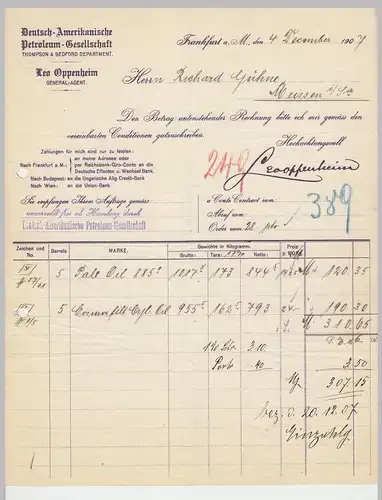 Deutsch-Amerikanische
Petroleum-Gesellschaft
THOMPSON & BEDFORD DEPARTMENT.
Leo Oppenheim
GENERAL-AGENT.
Frankfurt a. M., den 4 Dezember 1907
Herrn Richard Gühne
Meissen
Den Betrag untenstehender Rechnung bitte ich mir gemäss den
vereinbarten Conditionen gutzuschreiben.
Hochachtungsvoll
Leo Oppenheim
Zahlungen für mich sind nur zu leisten:
an meine Adresse oder
Nach Frankfurt a. M.: per Reichsbank-Giro-Conto an die
Deutsche Effecten u. Wechsel Bank.
Nach Budapest: an die Ungarische Allg. Credit-Bank
Nach Wien: an die Union-Bank.
249
389
Sie empfangen Ihrem Auftrage gemäss:
unversteuert frei ab Hamburg durch
Deutsch-Amerikanische Petroleum-Gesellschaft
a Conto Contract vom
Abruf vom
Order vom 28. pto
Zeichen und No. Barrels MARKE. Gewichte in Kilogramm. Preis
Brutto: Tara: Netto:
5 Pale Oil 885° 1017⁵ 173 844⁵ 120 35
5 Cyl. Oil 955⁵ 162⁵ 793 24.- 190 30
310 65
1% Sto. 3.10
Porto 40
3 50
307 15
bez. d. 20.12.07